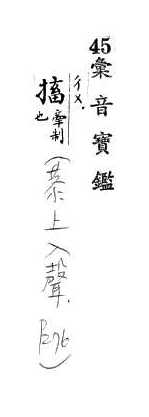 45彙音寶鑑
彳ㄨ.
搐牽制也
(恭上入聲. P.76)